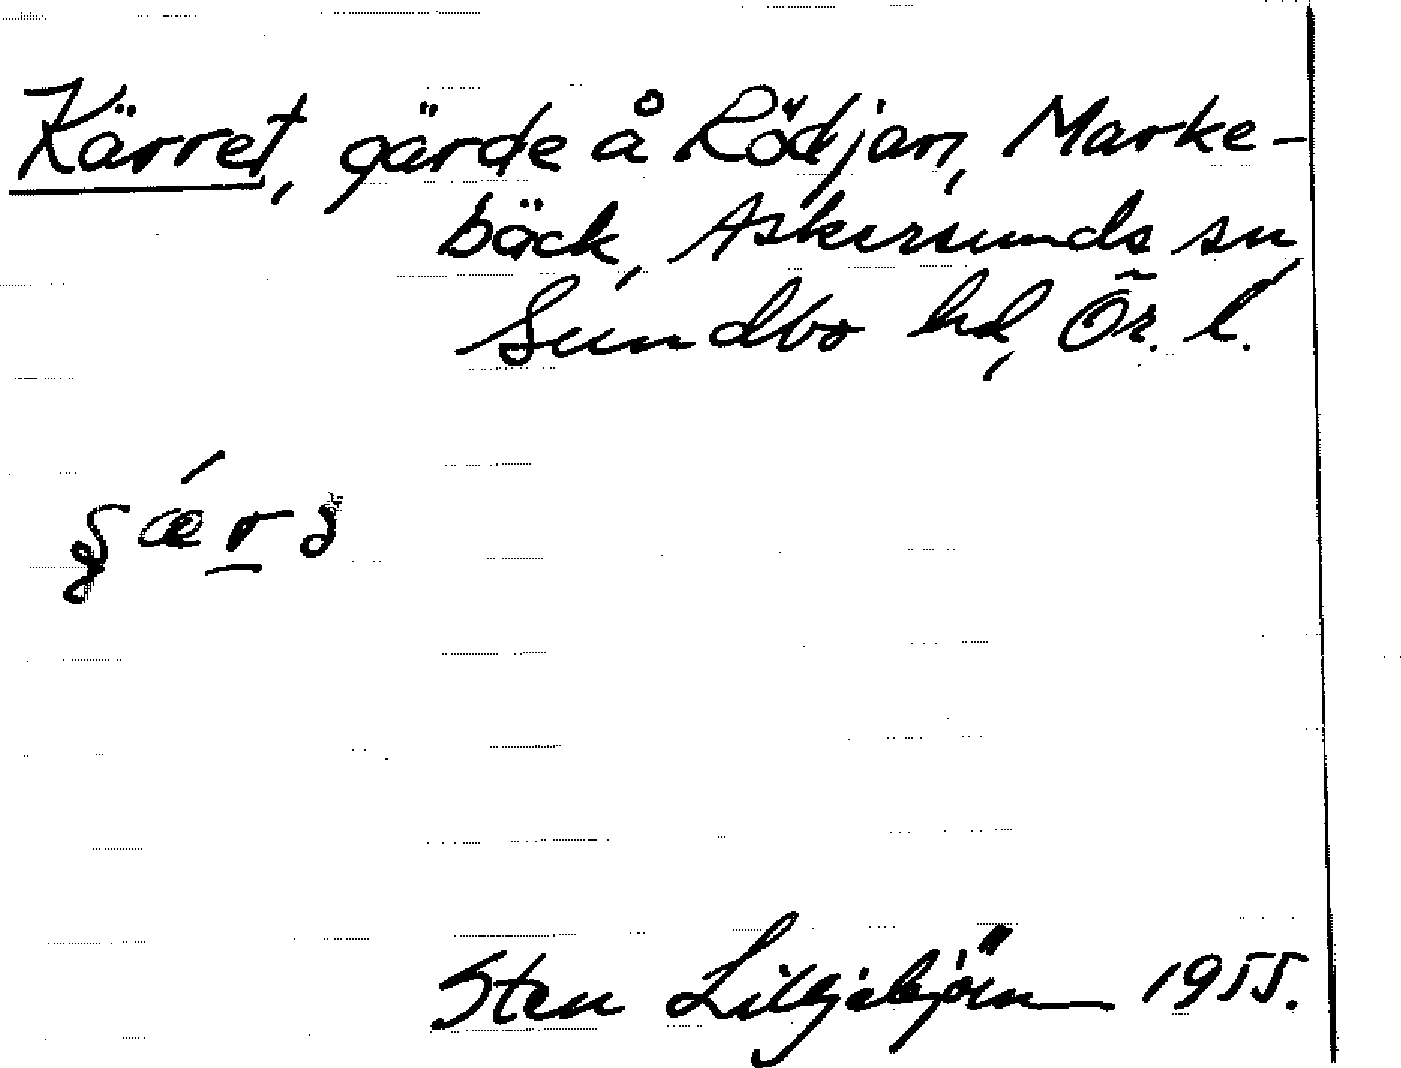 Kärret, gärde å Rödjan, Marke-
bäck, Askersunds sn
Sundbo hd, Ör. l.
Sten Liljebjörn 1955.